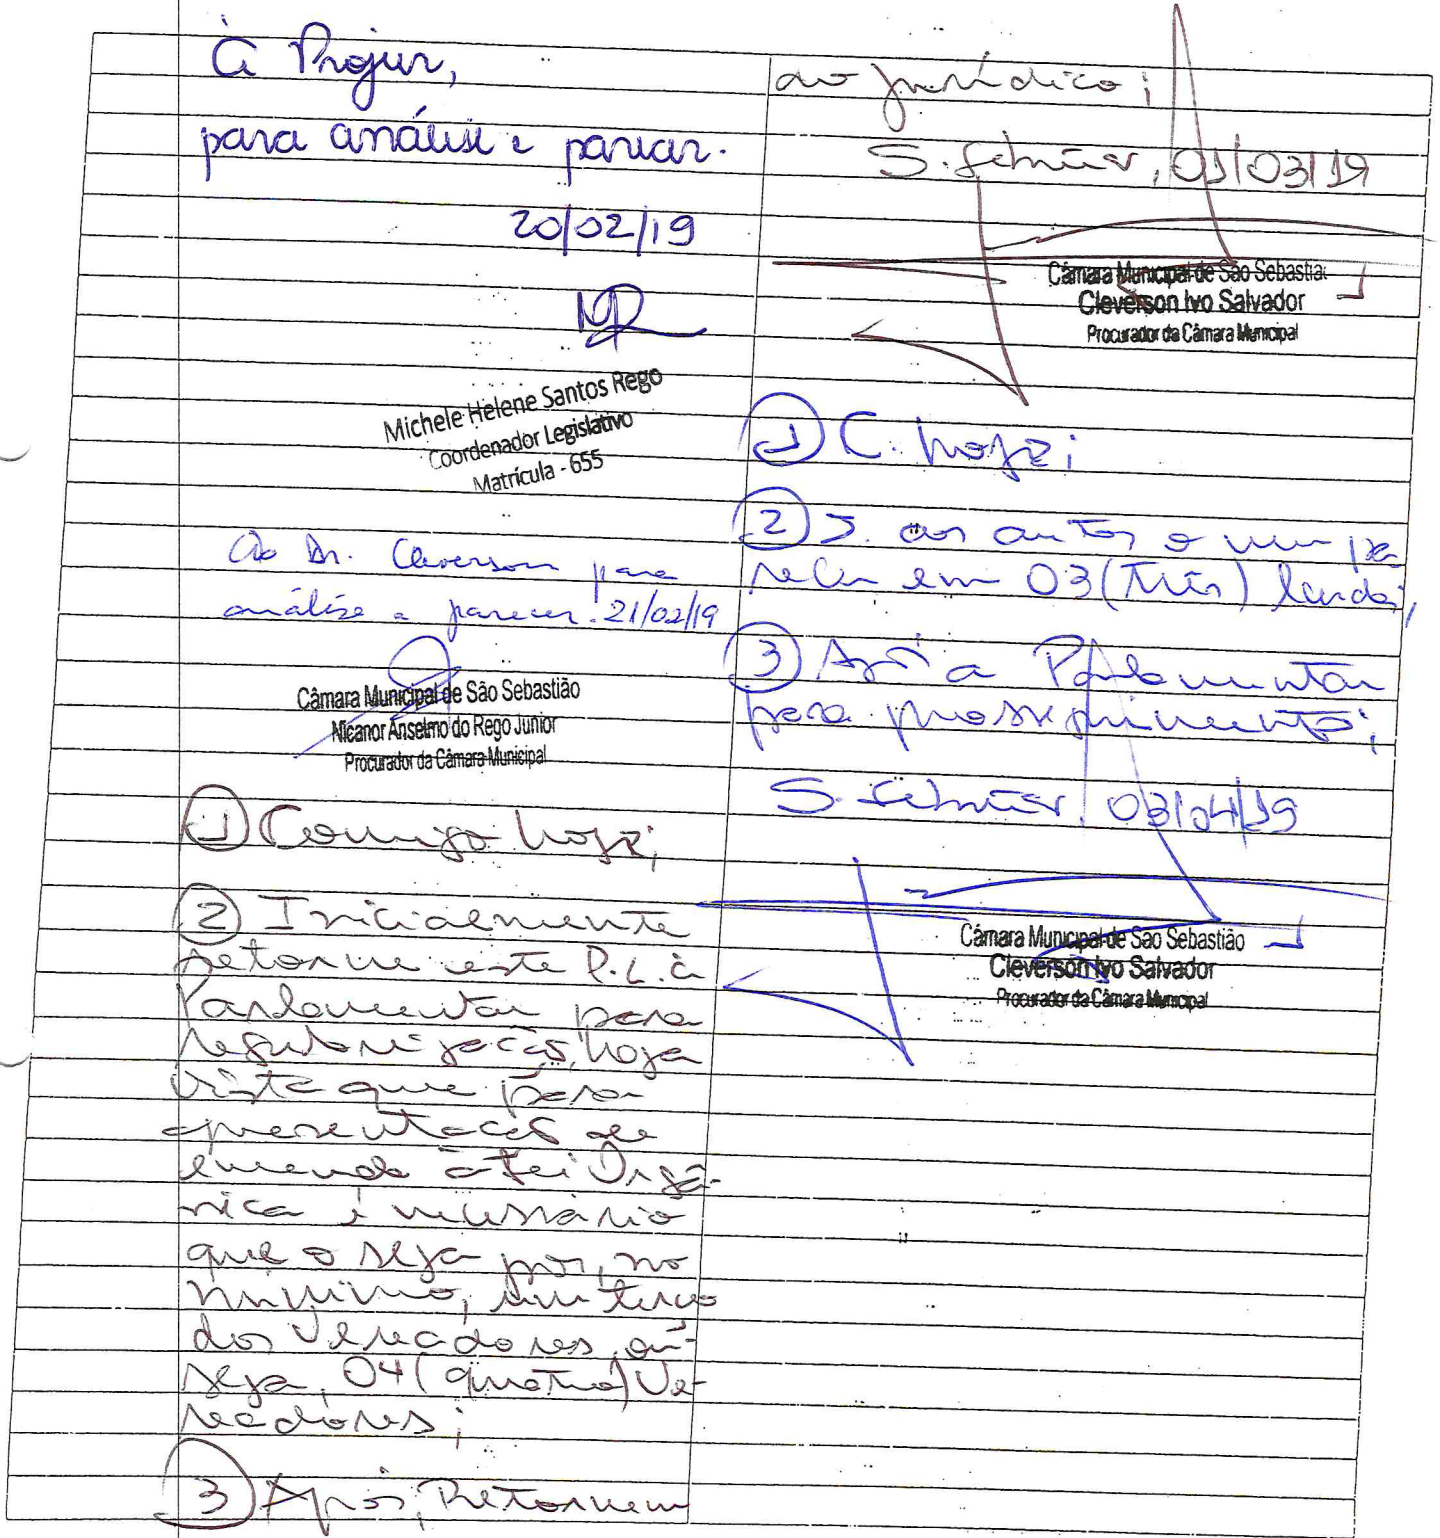 À Projur,
para análise e parecer.
20/02/19
Michele Helene Santos Rego
Coordenador Legislativo
Matrícula - 655
Ao Dr. Cleverson para
análise e parecer. 21/02/19
Câmara Municipal de São Sebastião
Nicanor Anselmo do Rego Junior
Procurador da Câmara Municipal
1 Comigo hoje;
2 Inicialmente
retorne este P.L. à
Parlamentar para
regularização, haja
vista que para
apresentação de
emenda à Lei Orgâ-
nica é necessário
que o seja por, no
mínimo, um terço
dos Vereadores, ou
seja, 04 (quatro) Ve-
readores;
3 Após, Retornem
ao jurídico;
S. Sebastião, 01/03/19
Câmara Municipal de São Sebastiã
Cleverson Ivo Salvador
Procurador da Câmara Municipal
1 C. hoje;
2 J. aos autos o meu pa
recer em 03 (três) laudas;
3 Após a Parlamentar
para prosseguimento;
S. Sebastião, 03/04/19
Câmara Municipal de São Sebastião
Cleverson Ivo Salvador
Procurador da Câmara Municipal